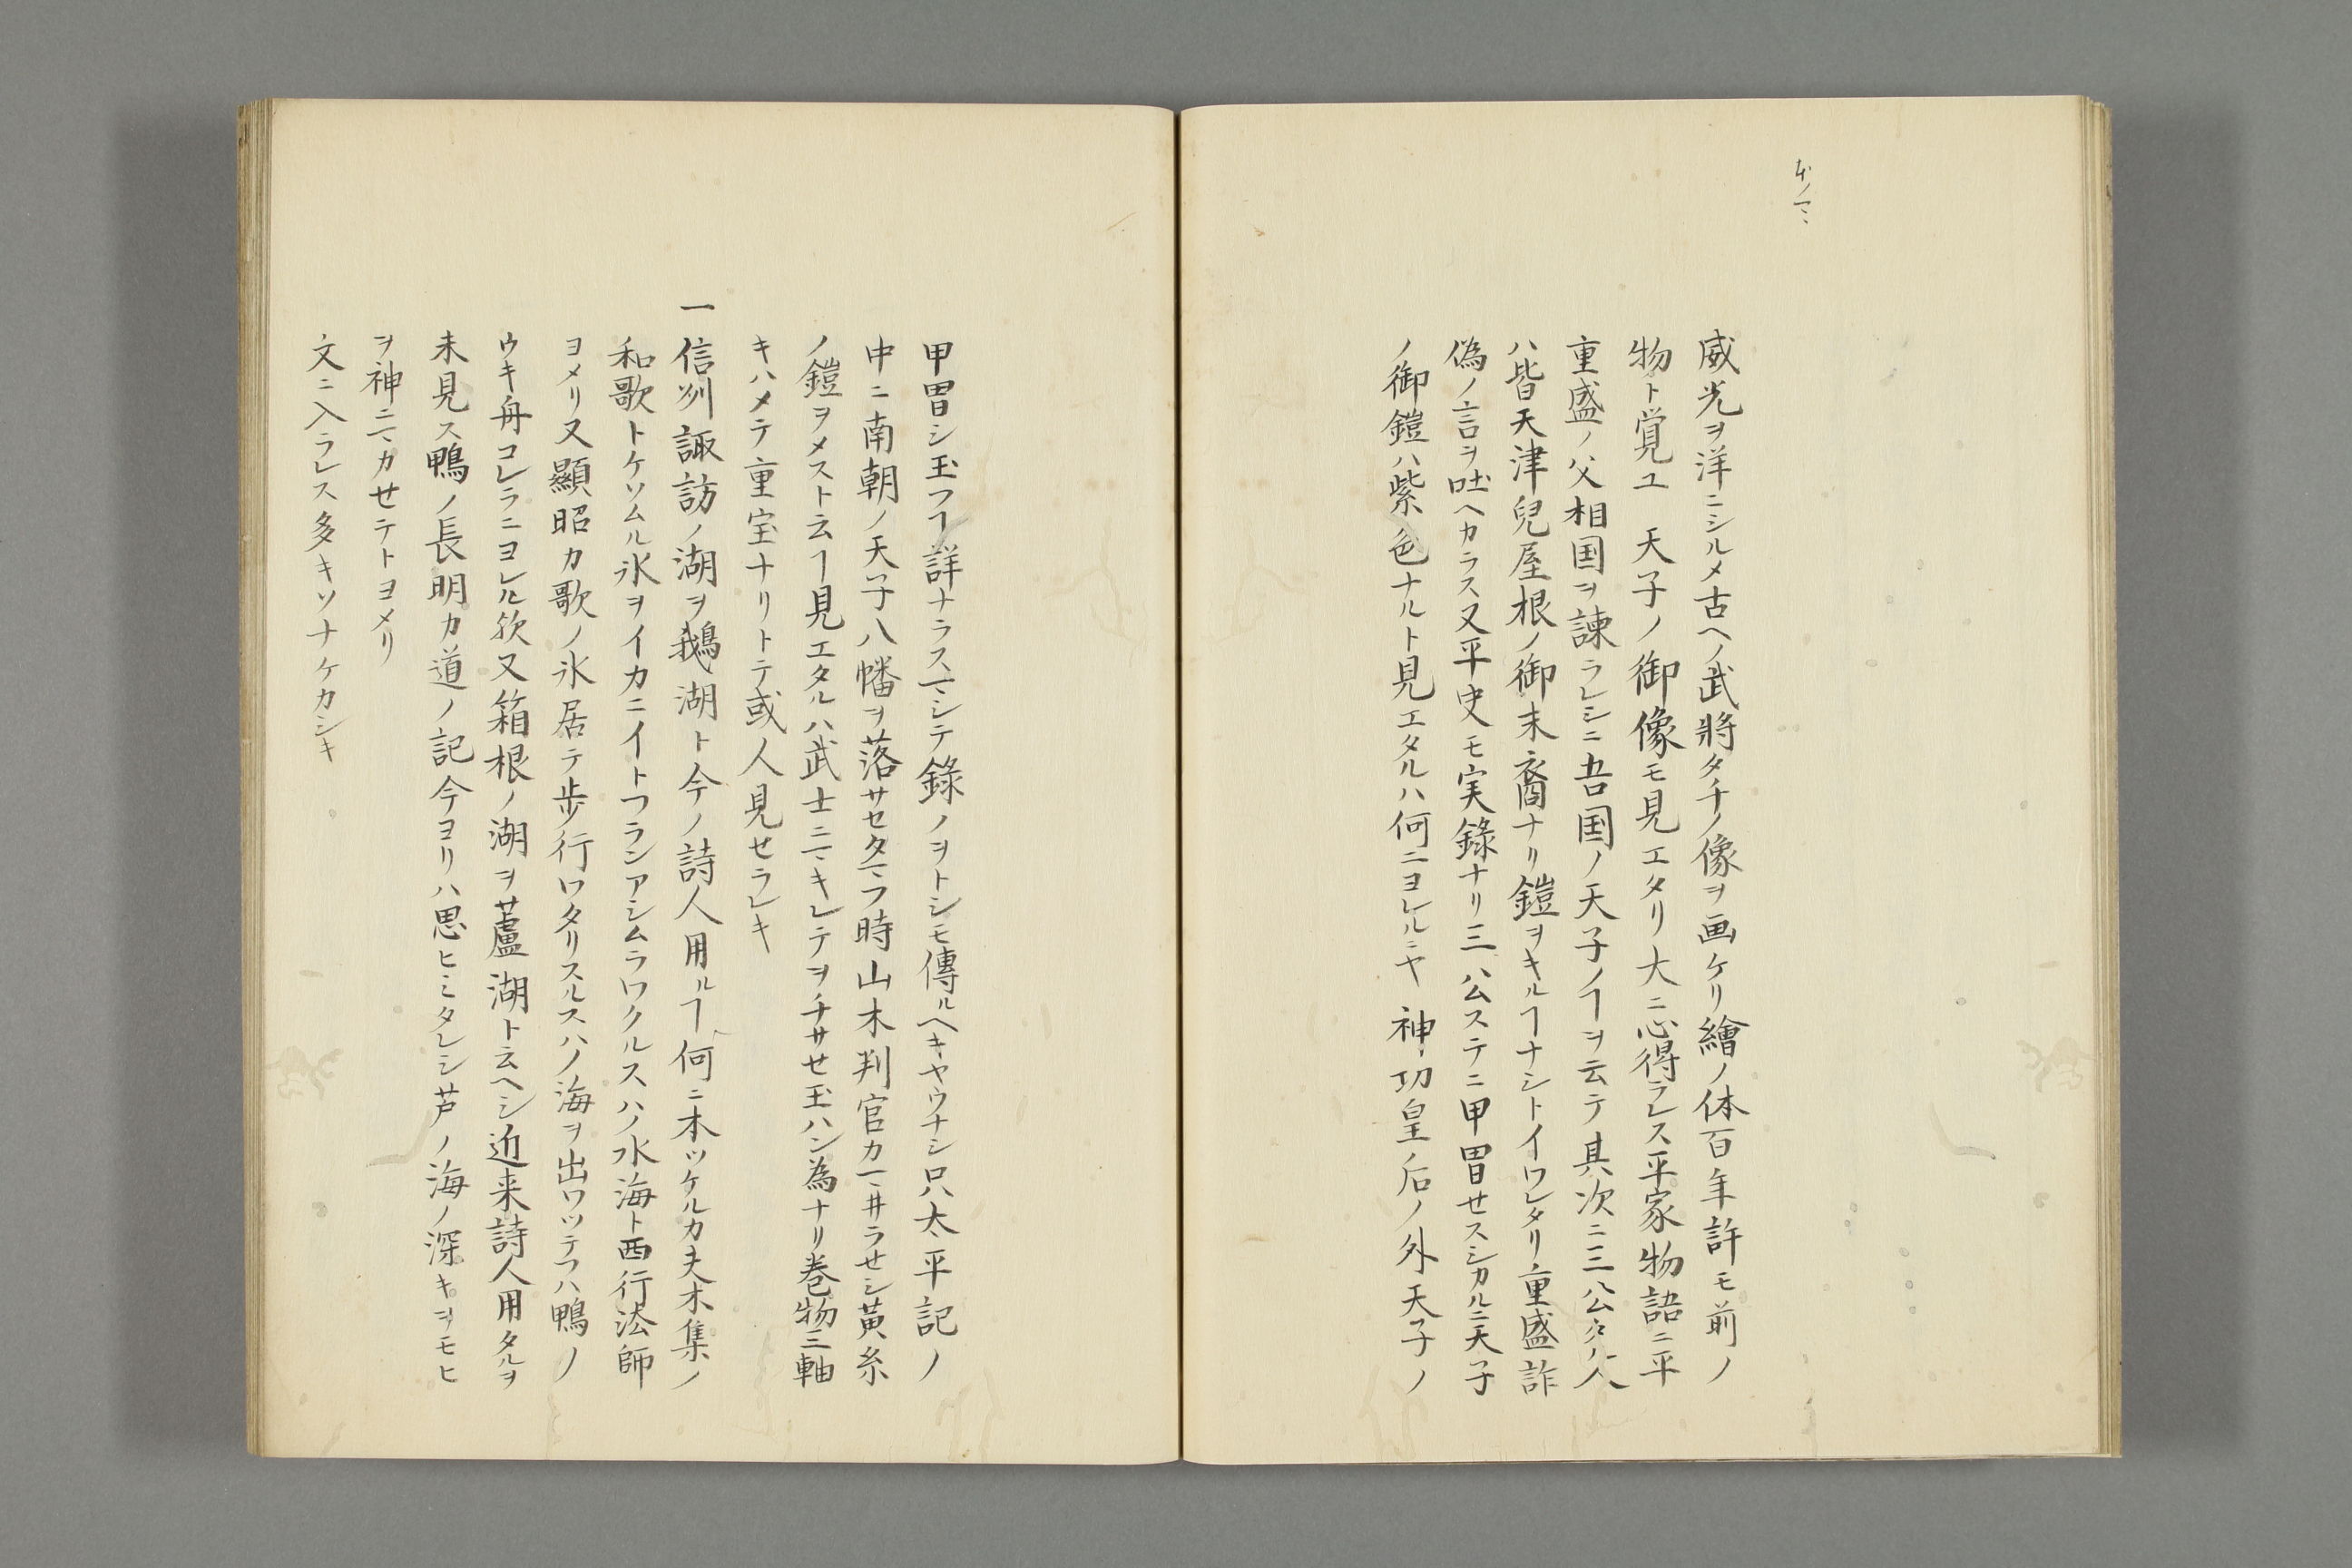 本ノマヽ
威光ヲ洋ニシルメ古ヘノ武將タチノ像ヲ画ケリ繪ノ体百年許モ前ノ
物ト覚ユ 天子ノ御像モ見エタリ大ニ心得ラレス平家物語ニ平
重盛ノ父相国ヲ諫ラレシニ吾国ノ天子ノヿヲ云テ其次ニ三公タル人
ハ皆天津兒屋根ノ御末裔ナリ鎧ヲキルヿナシトイワレタリ重盛詐
偽ノ言ヲ吐ヘカラス又平史モ実錄ナリ三公ステニ甲冑セスシカルニ天子
ノ御鎧ハ紫色ナルト見エタルハ何ニヨレルニヤ 神功皇后ノ外天子ノ
甲冑シ玉フヿ詳ナラスマシテ錄ノヲトシモ傳ルヘキヤウナシ只太平記ノ
中ニ南朝ノ天子八幡ヲ落サセタマフ時山木判官カマヰラセシ黄糸
ノ鎧ヲメスト云ヿ見エタルハ武士ニマキレテヲチサセ玉ハン為ナリ巻物三軸
キハメテ重宝ナリトテ或人見せラレキ
一信州諏訪ノ湖ヲ鵝湖ト今ノ詩人用ルヿ何ニ本ツケルカ夫木集ノ
和歌トケソムル氷ヲイカニイトフランアシムラワクルスハノ水海ト西行法師
ヨメリ又顯昭カ歌ノ氷居テ歩行ワタリスルスハノ海ヲ出ワツテフハ鴨ノ
ウキ舟コレラニヨレル欤又箱根ノ湖ヲ蘆湖ト云ヘシ近来詩人用タルヲ
未見ス鴨ノ長明カ道ノ記今ヨリハ思ヒミタレシ芦ノ海ノ深キヲモヒ
ヲ神ニマカせテトヨメリ
文ニ入ラレス多キソナケカシキ